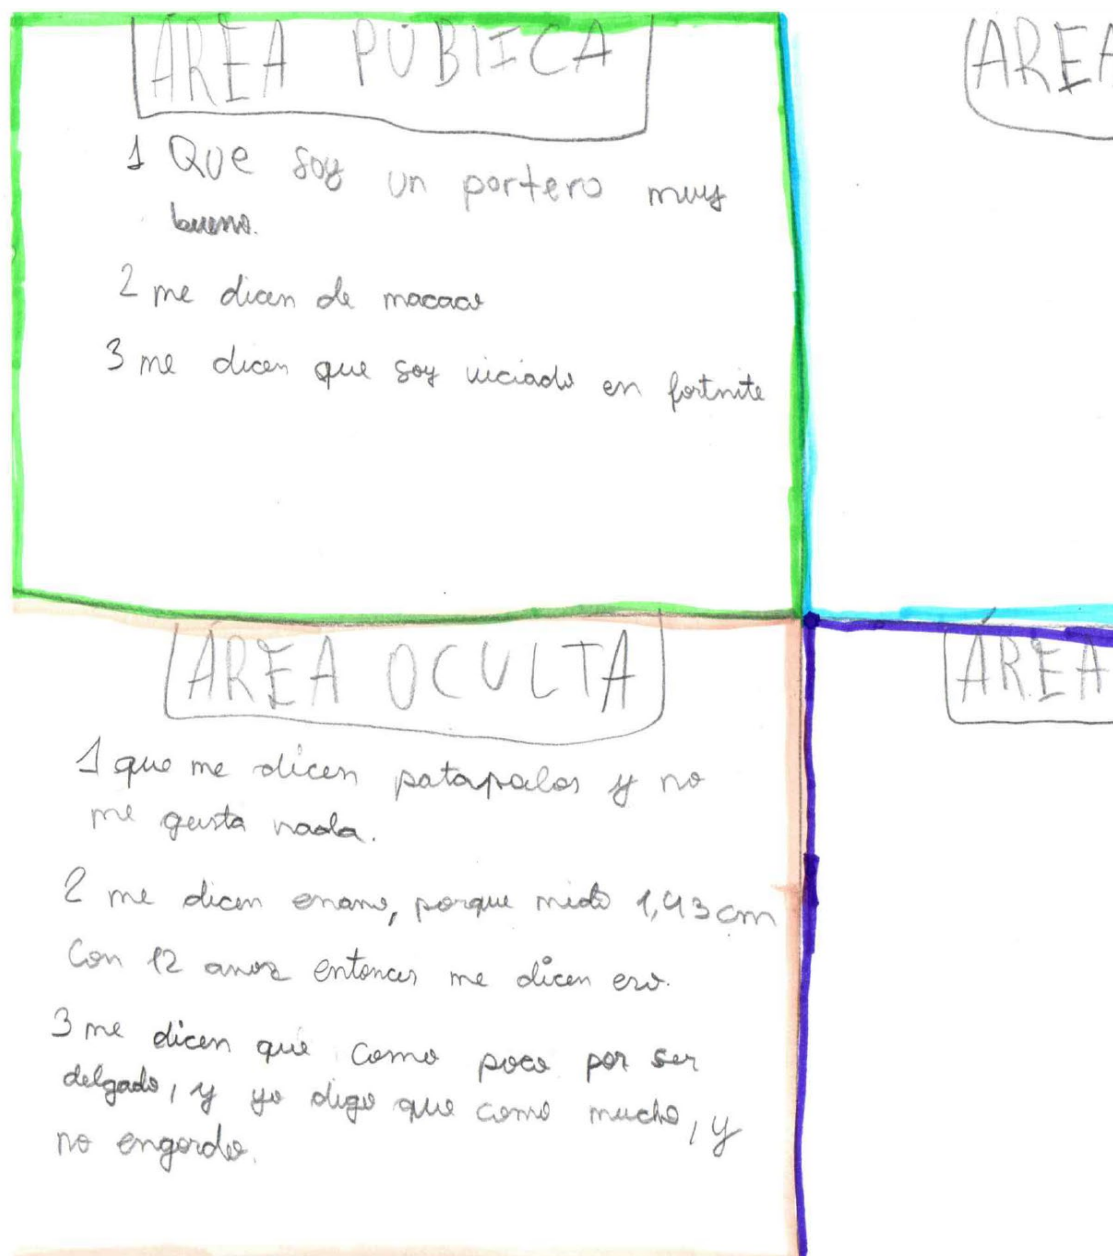 ÁREA PÚBLICA
1 Que soy un portero muy
bueno.
2 me dicen de macaco
3 me dicen que soy viciado en fortnite
ÁREA
ÁREA OCULTA
1 que me dicen patapalos y no
me gusta nada.
2 me dicen enano, porque mido 1,43 cm
Con 12 anos entonces me dicen eso.
3 me dicen que como poco por ser
delgado, y yo digo que como mucho, y
no engordo.
ÁREA